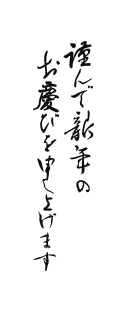 謹んで新年の
お慶びを申し上げます